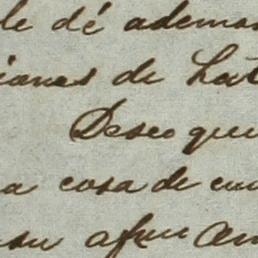 le dé ademas
iones de Lat
Deseo que
a cosa de cu
su afmo am